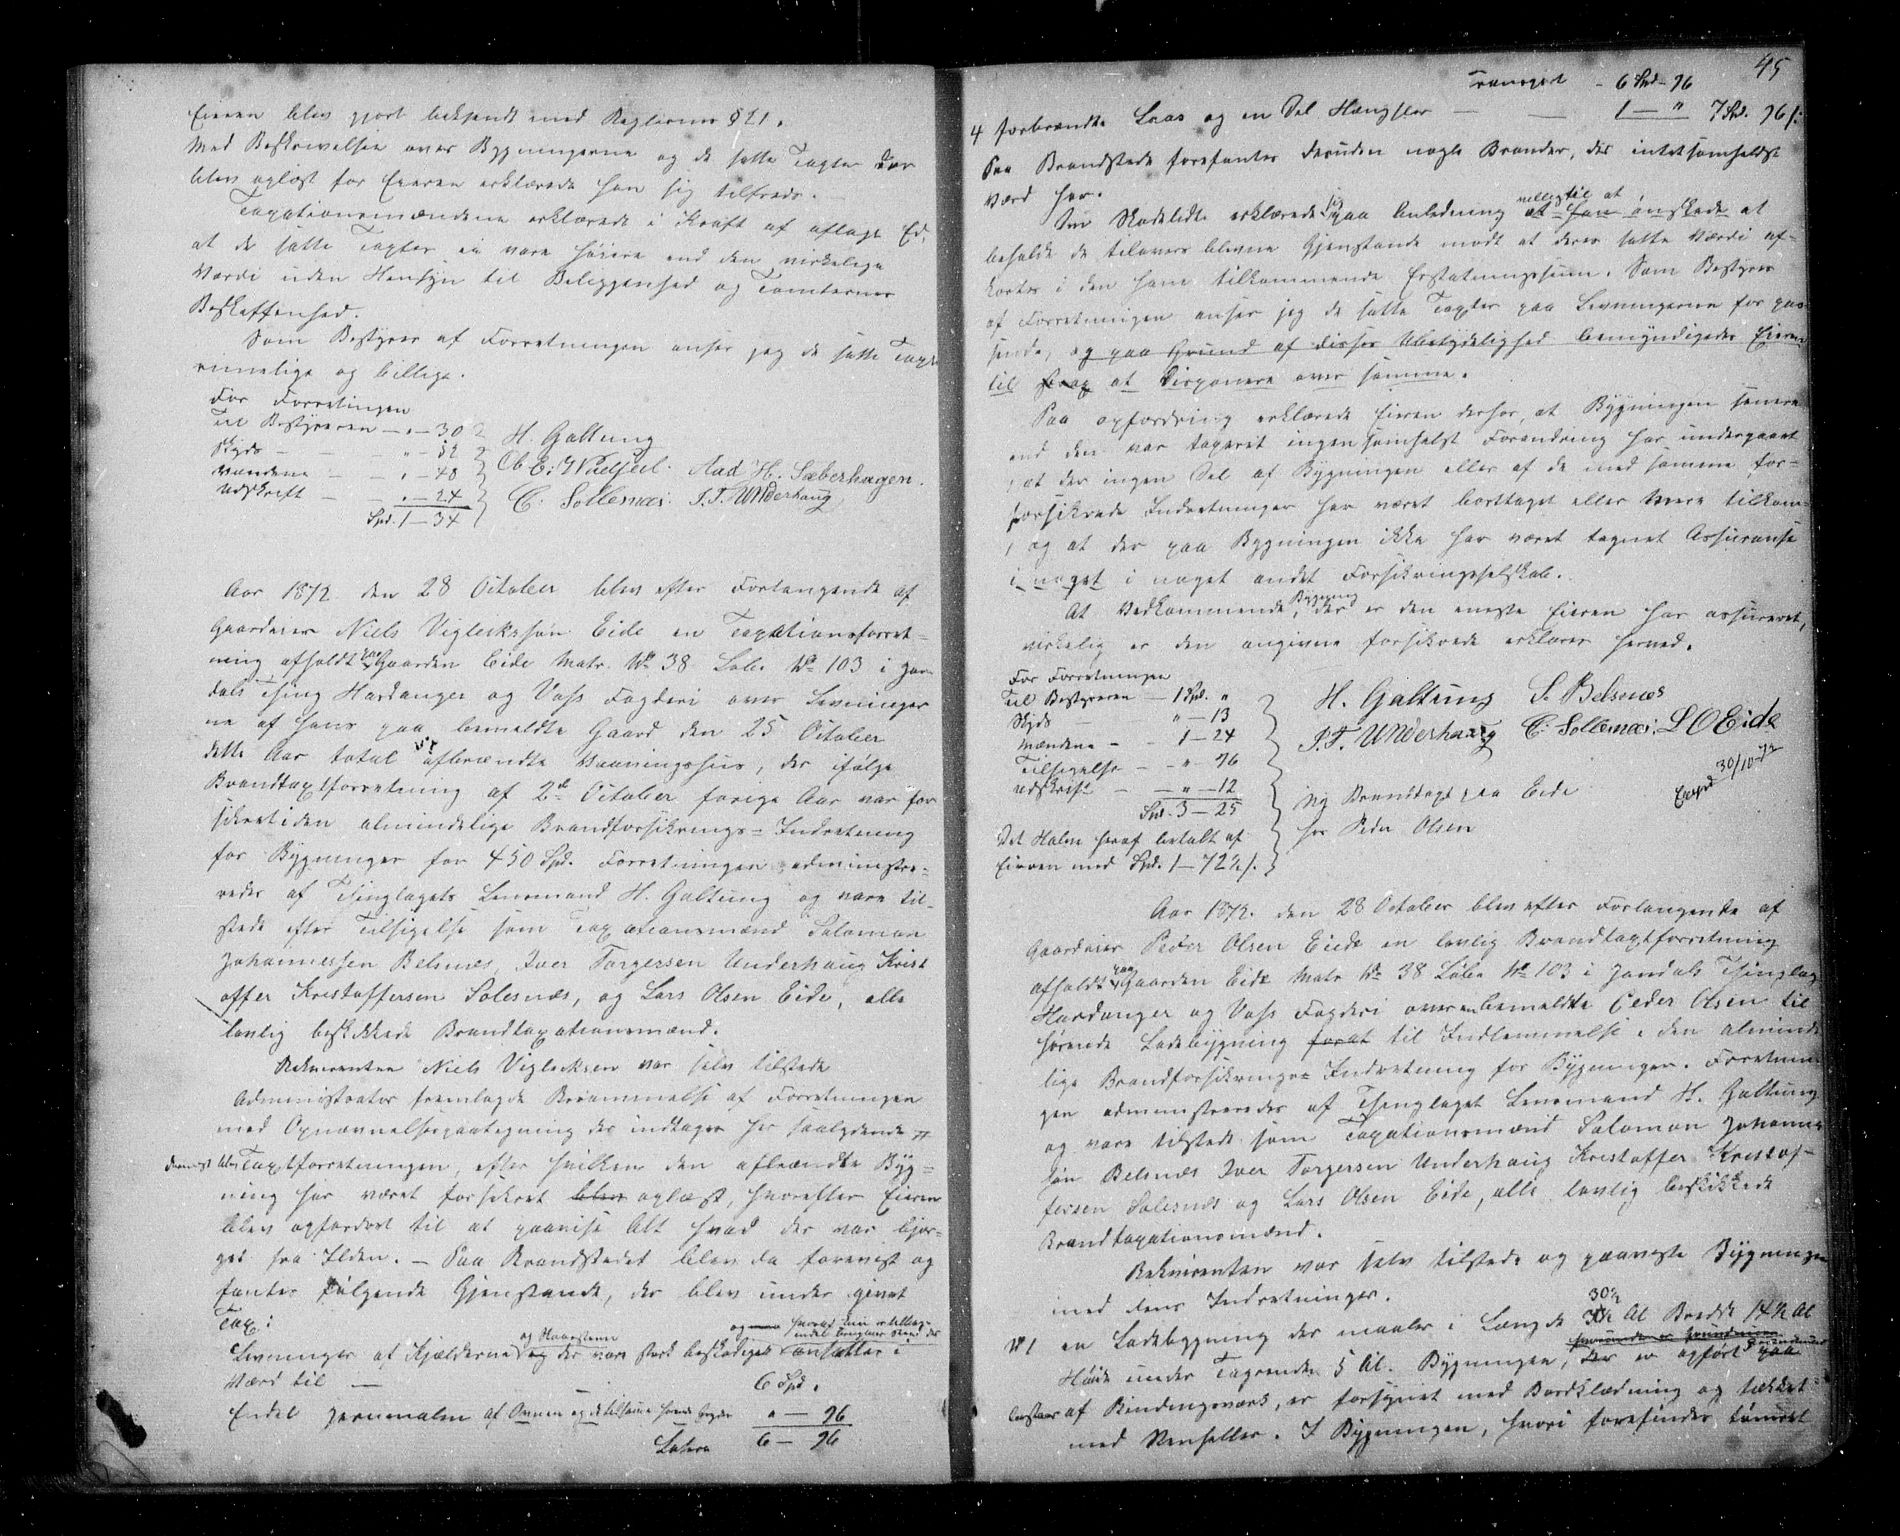 Eieren blev gjort bekjendt med Reglerne § 21.
Med Beskrivelsen over Bygningerne og de satte Taxter der
blev oplæst for Eieren erklærede han sig tilfreds.
Taxationsmændene erklærede i Kraft af aflagt Ed,
at de satte Taxter ei vare høiere end den virkelige
Værdi uden Hensyn til Beliggenhed og Tomternes
Beskaffenhed.
Som Bestyrer af Forretningen anser jeg de satte Taxter
rimelige og billige.
For Forretingen
Til Bestyreren — " — 30
Skyds — " — 52
Mændene — " — 48
Udskrift — " — 24
Spd. 1 — 34
H. Galtung
Aad H. Sæberhagen.
C. Sollesnæs. I. T. Underhaug
Aar 1872 den 28 October blev efter Forlangende af
Gaardeier Niels Viglecksøn Eide en Taxationsforret-
ning afholdt paa Gaarden Eide Matr. No 38 Løbe No 103 i Jon-
dals Thinglag Hardanger og Voss Fogderi over Levninger
ne af hans paa bemeldte Gaard den 25 October
dette Aar total afbrændte Vaaningshus, der ifølge
Brandtaxtforretning af 2d October forrige Aar var for
sikret i den almindelige Brandforsikrings-Indretning
for Bygninger for 450 Spd. Forretningen administre-
redes af Thinglagets Lensmand H. Galtung og vare til-
stede efter Tilsigelse som Taxationsmænd Salomon
Johannessen Belsnæs, Iver Torgersen Underhaug Krist
offer Kristoffersen Solesnæs, og Lars Olsen Eide, alle
lovlig beskikkede Brandtaxationsmænd.
Rekvirenten Niels Viglecksen var selv tilstede
Administrator fremlagde Berammelse af Forretningen
med Opnævnelsespaategning der indtages her saalydende
Dernæst blev Taxtforretningen, efter hvilken den afbrændte Byg-
ning har været forsikret blev oplæst, hvorefter Eieren
blev opfordret til at paavise Alt hvad der var bjer-
get fra Ilden. — Paa Brandstedet blev da forevist og
fantes følgende Gjenstande, der blev under givet
Tax:
Levninger af Kjælderne og Haarstenen og der var stærk beskadiget ansættes i
Værd til — 6 Spd.
Endel Jernmalm af Ovnen og " — 96
Latera 6 — 96
45
Transport — 6 Spd — 96
4 forbrændte Laas og en Del Hængsler — 1 — " 7 Spd. 96 s.
Paa Brandstedet forefantes desuden nogle Brander, der intetsomhelst
Værd har.
Den Skadelidte erklærede sig paa Anledning villig til at at han ønskede at
beholde de tilovers blevne Gjenstande modt at deres satte Værdi af-
kortes i den ham tilkommende Erstatningssum. Som Bestyrer
af Forretningen anser jeg de satte Taxter paa Levningerne for pas-
sende, og paa Grund af disses Ubetydelighed bemyndigedes Eieren
til at disponere over samme.
Paa opfordring erklærede Eieren derhos, at Bygningen senere
end den var taxeret ingen somhelst Forandring har undergaaet
, at der ingen Del af Bygningen eller af de med samme for-
forsikrede Indretninger har været borttaget eller mere tilkom-
, og at der paa Bygningen ikke har været tegnet Assuranse
i noget i noget andet Forsikringsselskab.
At Vedkommende Bygning, der er den eneste Eieren har assureret,
virkelig er den angivne forsikrede erklæres herved.
For Forretningen
Til Bestyreren — 1 Spd. "
Skyds — " — 13
Mændene — 1 — 24
Tilsigelse — " — 96
Udskrift — " — 12
Spd. 3 — 25
Det Halve heraf betalt af
Eieren med Spd. 1 — 72½ s.
H. Galtung S. Belsnæs
I. T. Underhaug C. Sollesnæs. L O Eide
Ny Brandtaxt paa Eide
hos Peder Olsen
Exped 30/10 72
Aar 1872. den 28 October blev efter Forlangende af
Gaardeier Peder Olsen Eide en lovlig Brandtaxtforretning
afholdt paa Gaarden Eide Matr No 38 Løbe No 103 i Jondals Thinglag
Hardanger og Voss Fogderi over en bemeldte Peder Olsen til
hørende Ladebygning forat til Indlemmelse i den alminde
lige Brandforsikrings-Indretning for Bygninger. Forretnin
gen administreredes af Thinglaget Lensmand H. Galtung
og vare tilstede som Taxationsmænd Salomon Johannes
søn Belsnæs Iver Torgersen Underhaug Kristoffer Kristof-
fersen Solesnæs og Lars Olsen Eide, alle lovlig beskikkede
Brandtaxationsmænd.
Rekvirenten var selv tilstede og paaviste Bygningen
med dens Indretninger.
No 1 en Ladebygning der maaler i Længde 30½ Al Bredde 14½ Al
Høide under Tagrenden 5 Al. Bygningen, der er opført
af Bindingsværk, er forsynet med Bordklædning og tækket
med Stenheller. I Bygningen, hvori forefindes tømret